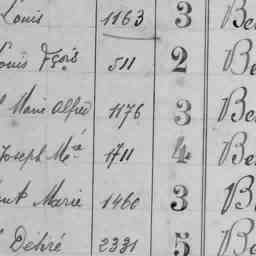 Louis 1163 3 Be
ouis Fçois 511 2 Be
Marie Alfred 1176 3 Be
Joseph Mie 1711 4 Be
Marie 1460 3 Be
Désiré 2331 5 Be